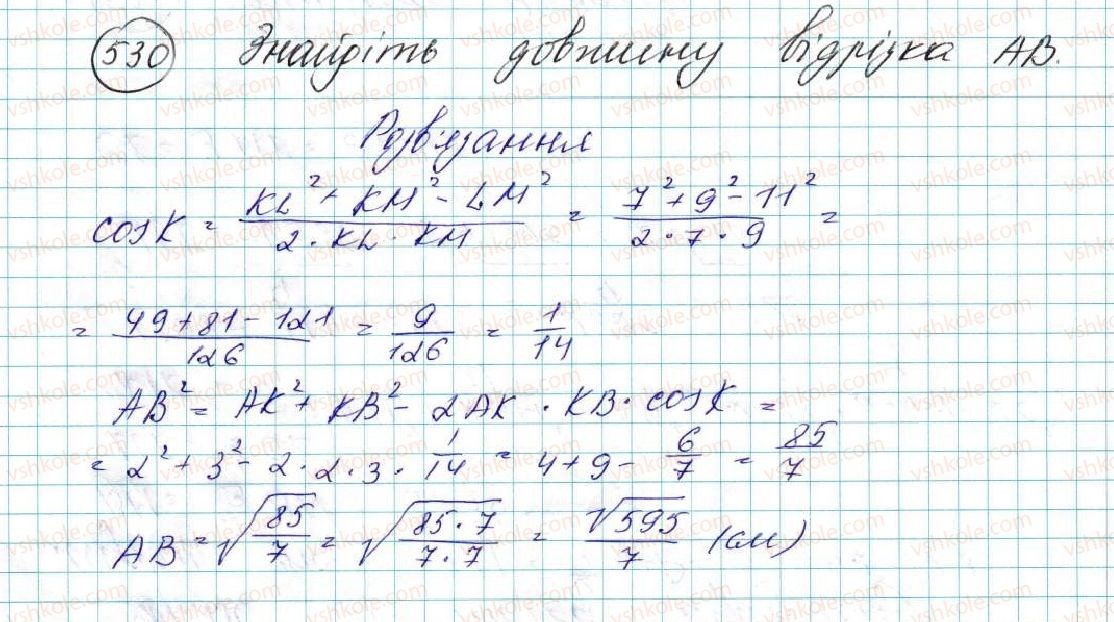 530 Знайдіть довжину відрізка AB.
Розв'язання
cosK = (KL² + KM² - LM²) / (2·KL·KM) = (7² + 9² - 11²) / (2·7·9) =
= (49 + 81 - 121) / 126 = 9/126 = 1/14
AB² = AK² + KB² - 2AK·KB·cosK =
= 2² + 3² - 2·2·3·1/14 = 4 + 9 - 6/7 = 85/7
AB = √(85/7) = √((85·7)/(7·7)) = √595/7 (см)
vshkole.com